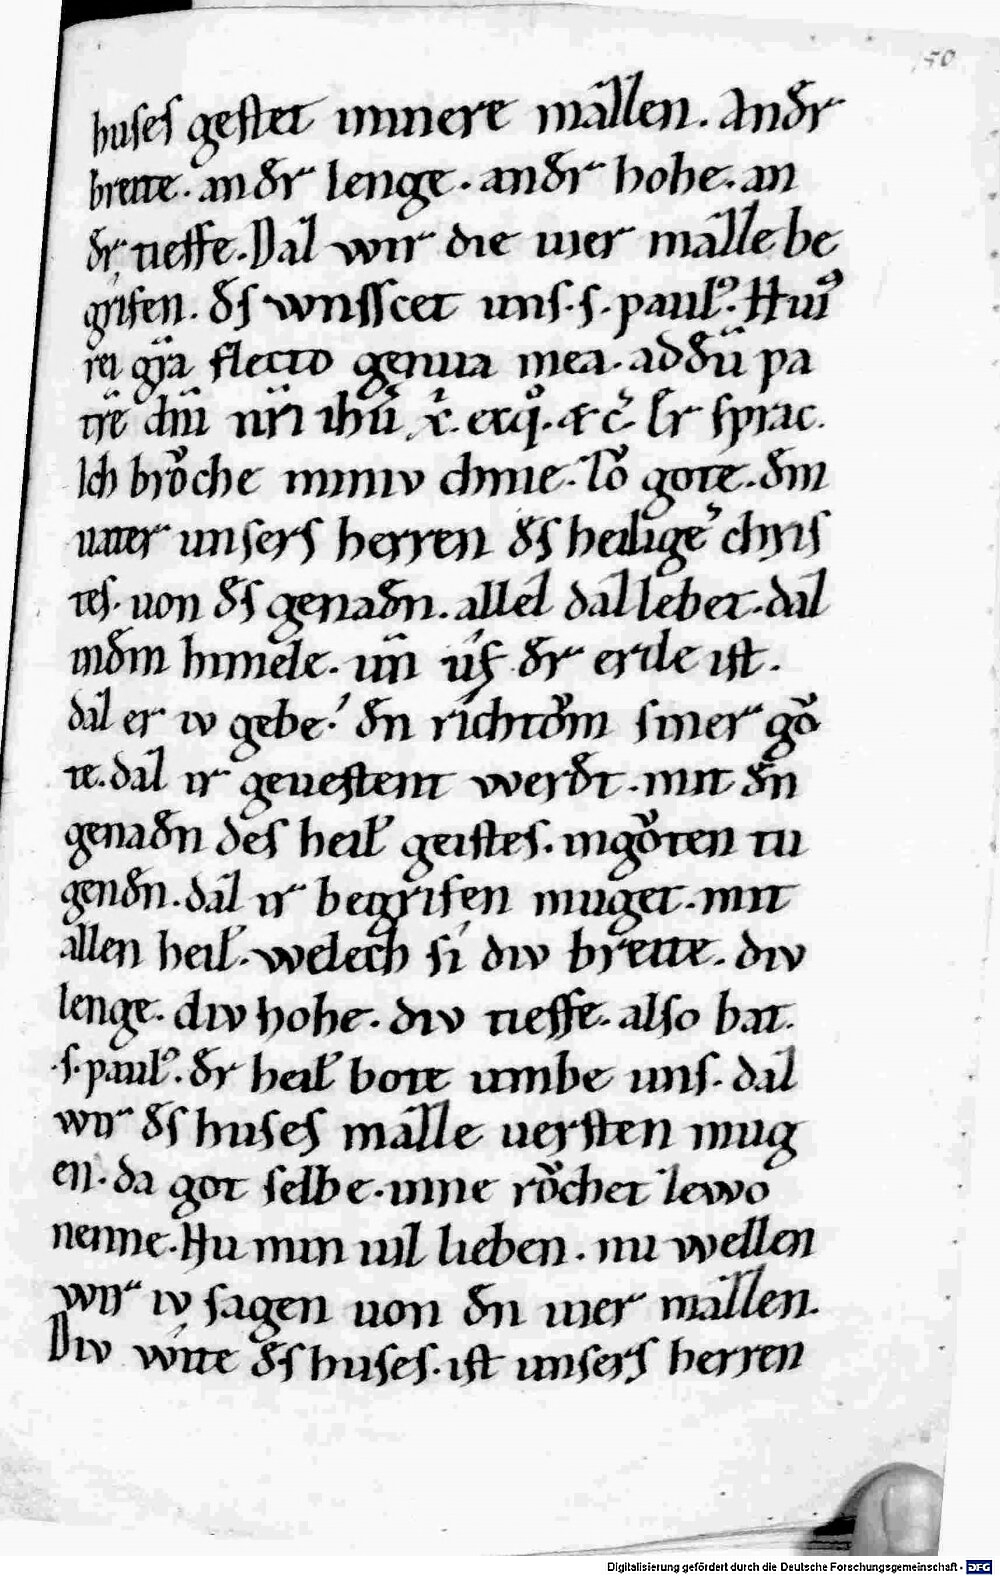 150
huses geſtet inınere mâllen. An đr
breite. an đr lenge. an đr hohe. an
đr tieffe. Dal wir die uier mâlle be
grifen. đs wnſſcet uns. s. paulꝰ. Huiꝰ
rei gr̄a flecto genua mea. ad dn̄ı pa
trē dn̄ı nr̄ı ihū x̄. ex q̊. & c̄. Er ſprac.
Ich brǒche miniv chnie. zǒ gote. đm
uater unſers herren đs heiligē chris
tes. von đs genađn. allel dal lebet. dal
in đm himele. un̄ ûf đr erde iſt.
dal er iv gebe. đn richtǒm ſiner gǒ
te. dal ir geueſtent werđt. mit đn
genađn des heil᷒ geiſtes. in gǒten tu
genđn. dal ir begrifen muget. mit
allen heil᷒. welech ſi div breite. div
lenge. div hohe. div tieffe. alſo bat.
.s. paulꝰ. đr heil᷒ bote umbe uns. dal
wir đs huſes mâlle uerſten mug
en. da got ſelbe. inne rǒchet ze wo
nenne. Hu min uil lieben. nu wellen
wir iv ſagen von đn uier mâllen.
Div wîte đs huſes. iſt unſers herren
Digitalisierung gefördert durch die Deutsche Forschungsgemeinschaft - DFG